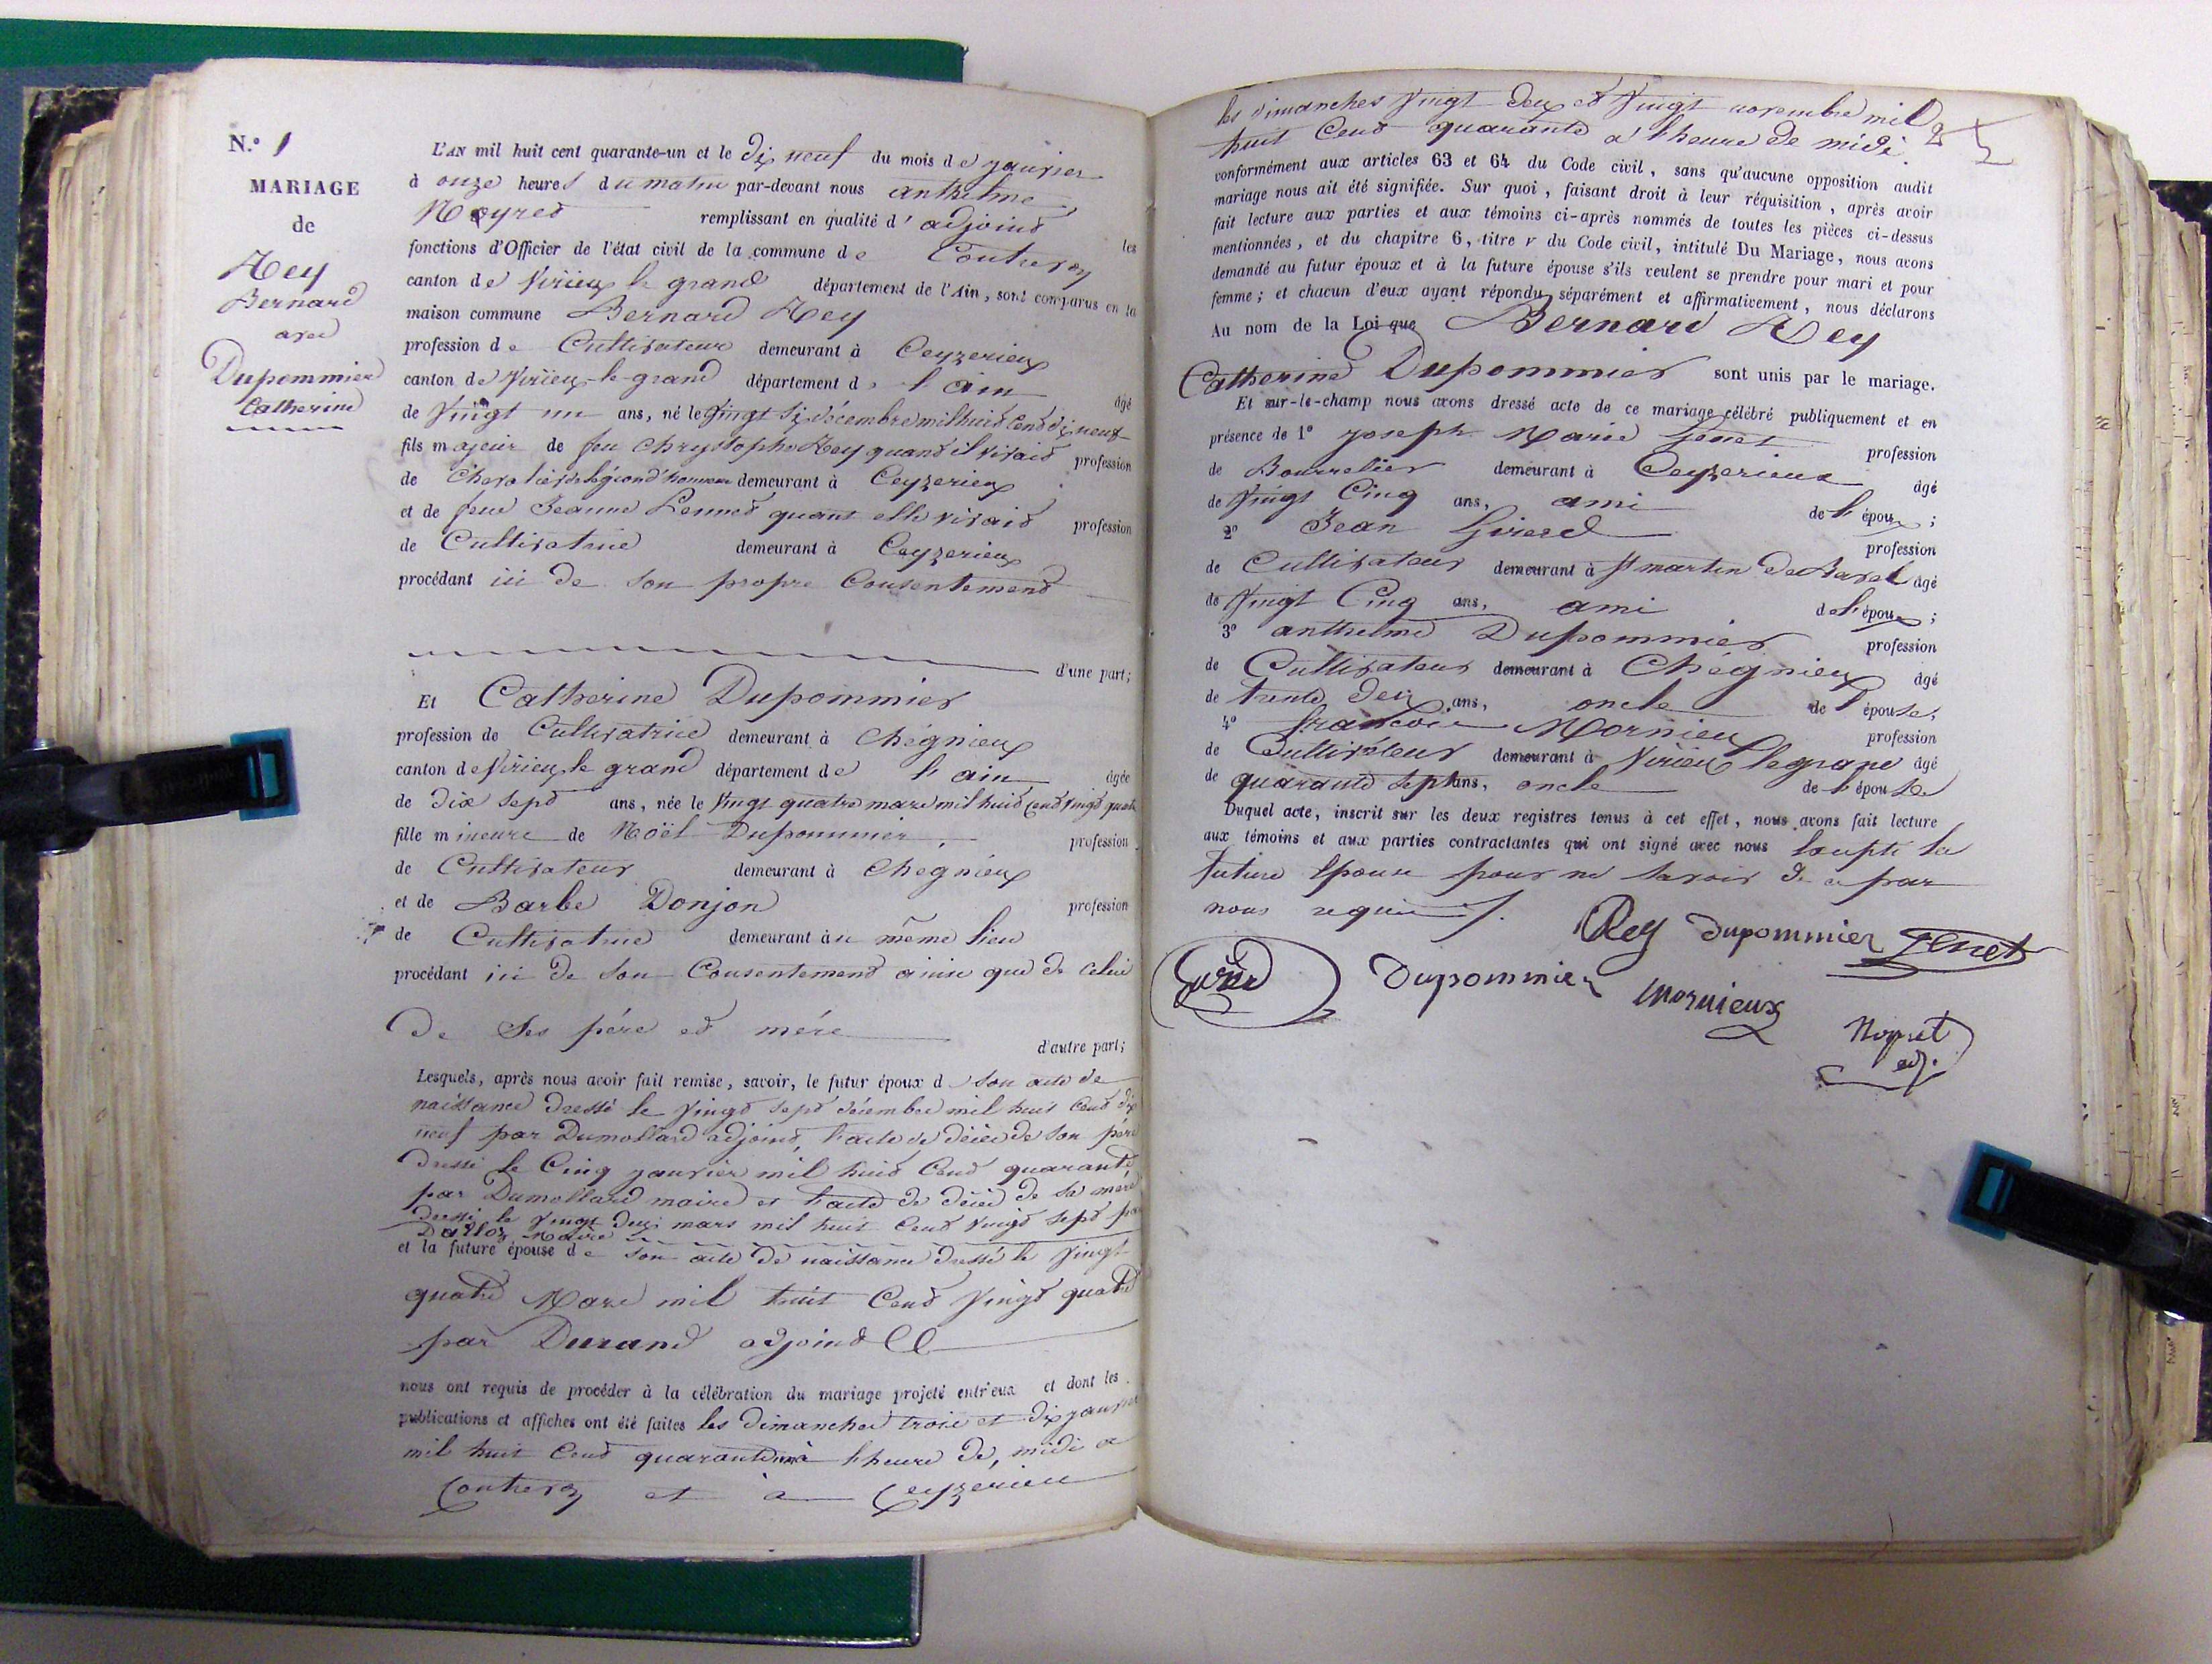 N.º 1
MARIAGE
de
Rey
Bernard
avec
Dupommier
Catherine
L'AN mil huit cent quarante-un et le dix neuf du mois de janvier
à onze heures du matin par-devant nous anthelme
Noyret remplissant en qualité d'adjoint les
fonctions d'Officier de l'état civil de la commune de Contrevoz
canton de Virieu le grand département de l'Ain, sont comparus en la
maison commune Bernard Rey
profession de Cultivateur demeurant à Ceyzerieux
canton de Virieu-le-grand département de l'ain âgé
de Vingt un ans, né le Vingt six décembre mil huit Cent dix neuf
fils majeur de feu Chrystophe Rey quand il vivait profession
de Chevalier de légiond'honneur demeurant à Ceyzerieux
et de feue Jeanne quant elle vivait profession
de Cultivatrice demeurant à Ceyzerieux
procédant ici de son propre Consentement
d'une part;
Et Catherine Dupommier
profession de Cultivatrice demeurant à Chégnieux
canton de Virieu le grand département de l'ain âgée
de dix sept ans, née le Vingt quatre mars mil huit Cent vingt quatre
fille mineure de Noël Dupommier, profession
de Cultivateur demeurant à Chegnieux
et de Barbe Donjon profession
de Cultivatrice demeurant au même lieu
procédant ici de son Consentement ainsi que de celui
de ses père et mère
d'autre part;
Lesquels, après nous avoir fait remise, savoir, le futur époux de son acte de
naissance dressé le vingt sept décembre mil huit Cent dix
neuf par Dumollard adjoint, l'acte de décès de son père
dressé le Cinq janvier mil huit Cent quarante
par Dumollard maire et l'acte de décès de sa mère
dressé le vingt deux mars mil huit Cent vingt sept par
Dalloz Maire
et la future épouse de son acte de naissance dressé le Vingt
quatre Mars mil huit Cent Vingt quatre
par Durand adjoint
nous ont requis de procéder à la célébration du mariage projeté entr'eux et dont les
publications et affiches ont été faites les dimanches trois et dix janvier
mil huit Cent quarante un à l'heure de midi a
Contrevoz et à Ceyzerieu
les dimanches Vingt deux et Vingt novembre mil
huit Cent quarante a l'heure de midi.
2
conformément aux articles 63 et 64 du Code civil, sans qu'aucune opposition audit
mariage nous ait été signifiée. Sur quoi, faisant droit à leur réquisition, après avoir
fait lecture aux parties et aux témoins ci-après nommés de toutes les pièces ci-dessus
mentionnées, et du chapitre 6, titre v du Code civil, intitulé Du Mariage, nous avons
demandé au futur époux et à la future épouse s'ils veulent se prendre pour mari et pour
femme; et chacun d'eux ayant répondu séparément et affirmativement, nous déclarons
Au nom de la Loi que Bernard Rey
Catherine Dupommier sont unis par le mariage.
Et sur-le-champ nous avons dressé acte de ce mariage célébré publiquement et en
présence de 1º joseph Marie Genet profession
de Bourrelier demeurant à Ceyzerieux âgé
de Vingt Cinq ans, ami de l'époux;
2º Jean Girerd profession
de Cultivateur demeurant à St martin de Bavel âgé
de Vingt Cinq ans, ami de l'époux;
3º anthelme Dupommier profession
de Cultivateur demeurant à Chégnieux âgé
de trente deux ans, oncle de l'épouse;
4º francois Mornieux profession
de Cultivateur demeurant à Virieu le grand âgé
de quarante sept ans, oncle de l'épouse
Duquel acte, inscrit sur les deux registres tenus à cet effet, nous avons fait lecture
aux témoins et aux parties contractantes qui ont signé avec nous Excepté la
future Epouse pour ne savoir de ce par
nous requise.
Rey Dupommier Genet
Girerd Dupommier Mornieux
Noyret
adj.